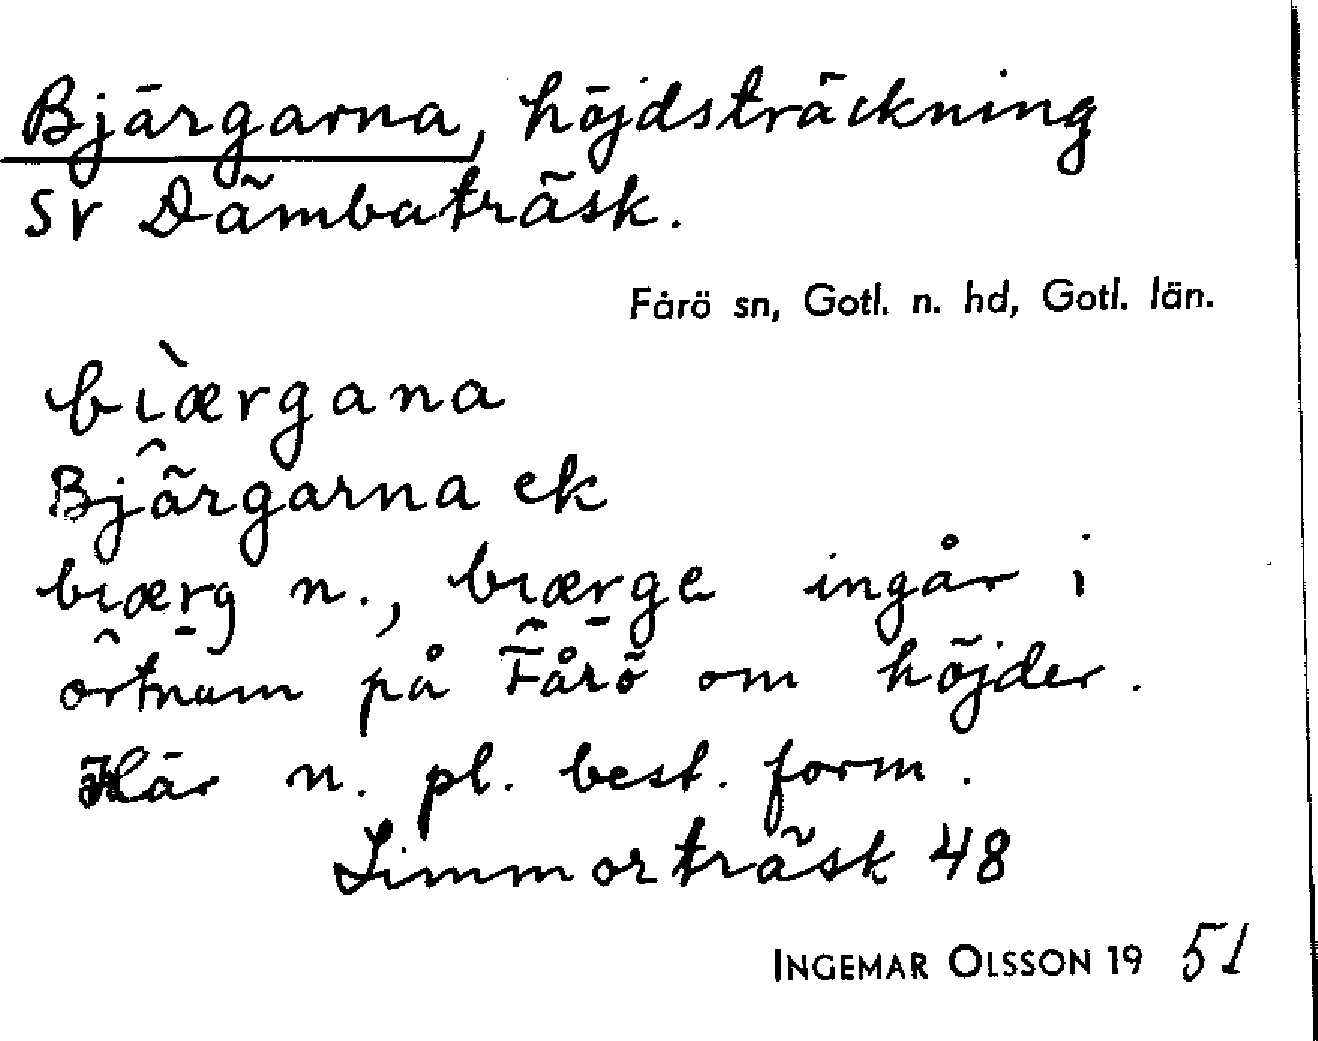 Bjärgarna, höjdsträckning
SV Dämbaträsk.
Fårö sn, Gotl. n. hd, Gotl. län.
bi̯æ̀rgana
Bjärgarna ek
bi̯ærg n., bi̯ærge ingår i
ortnamn på Fårö om höjder.
Här n. pl. best. form.
Limmorträsk 48
INGEMAR OLSSON 19 51